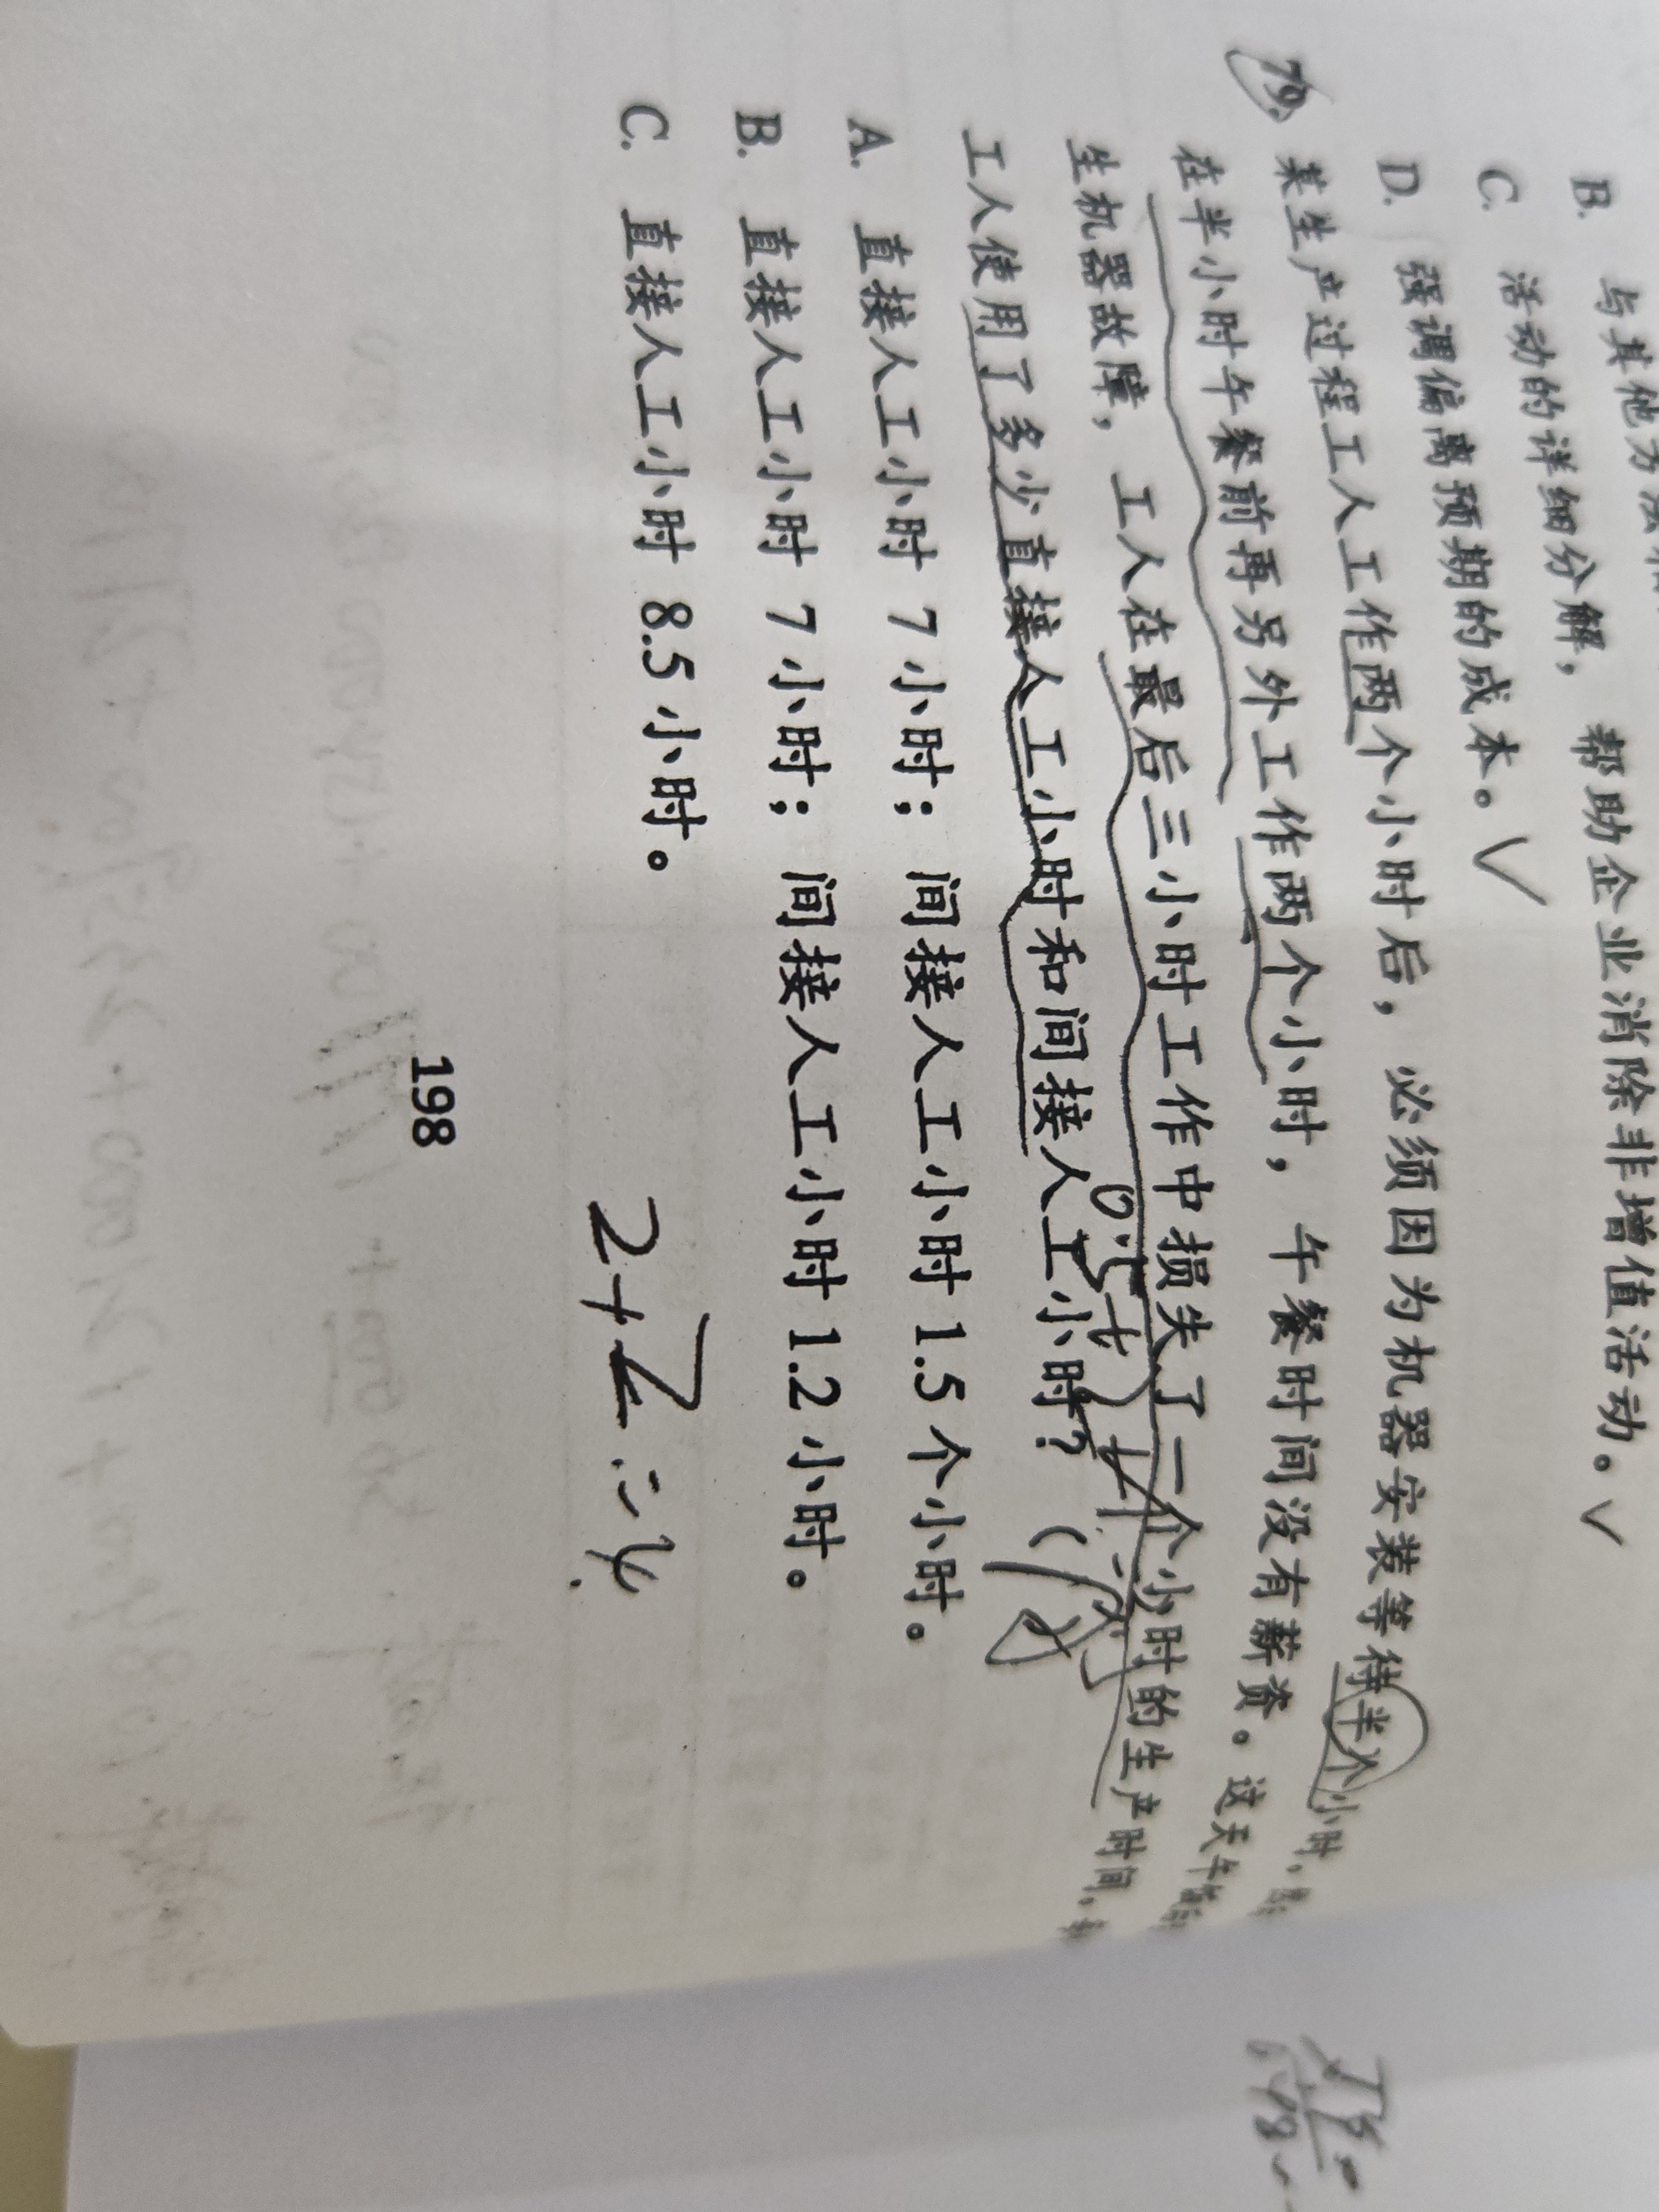 B. 与其他方法
C. 活动的详细分解，帮助企业消除非增值活动。√
D. 强调偏离预期的成本。√
79. 某生产过程工人工作两个小时后，必须因为机器安装等待半个小时，
在半小时午餐前再另外工作两个小时，午餐时间没有薪资。这天午餐
生机器故障，工人在最后三小时工作中损失了一个小时的生产时间，
工人使用了多少直接人工小时和间接人工小时？（
A. 直接人工小时 7 小时；间接人工小时 1.5 个小时。
B. 直接人工小时 7 小时；间接人工小时 1.2 小时。
C. 直接人工小时 8.5 小时。
2+2=4
198